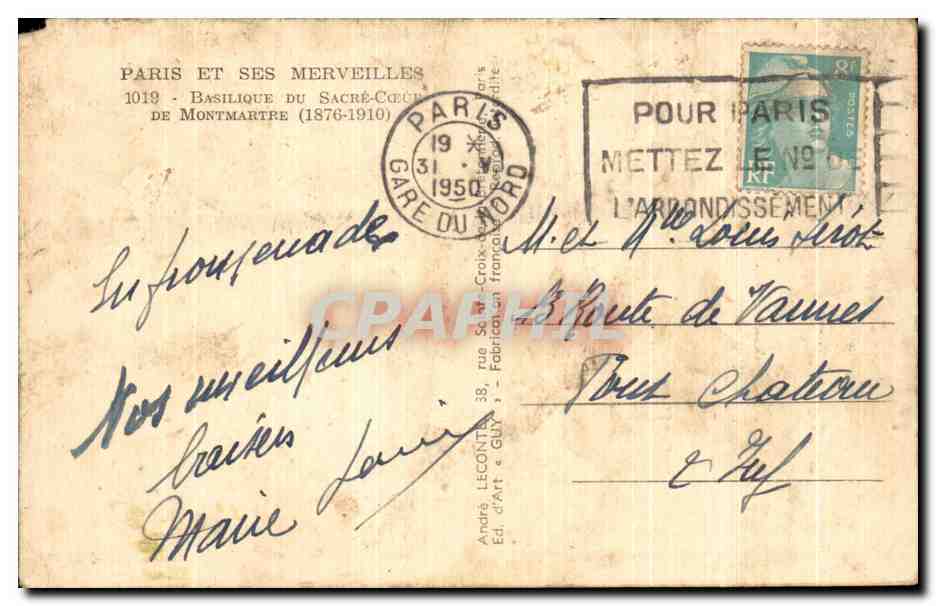 PARIS ET SES MERVEILLES
1019 - BASILIQUE DU SACRÉ-CŒUR
DE MONTMARTRE (1876-1910)
PARIS
19 X
31 · V
1950
GARE DU NORD
POUR PARIS
METTEZ LE Nº
L'ARRONDISSEMENT
8F
POSTES
RF
En promenade
Nos meilleurs
baisers
Marie Louis
M. et Mme Louis
13 Route de Vannes
Pont Chateau
Inf
André LECONTE, 38, rue Sainte-Croix-de- Paris
Ed. d'Art « GUY » - Fabrication française - Reprod. interdite
CPAPHIL